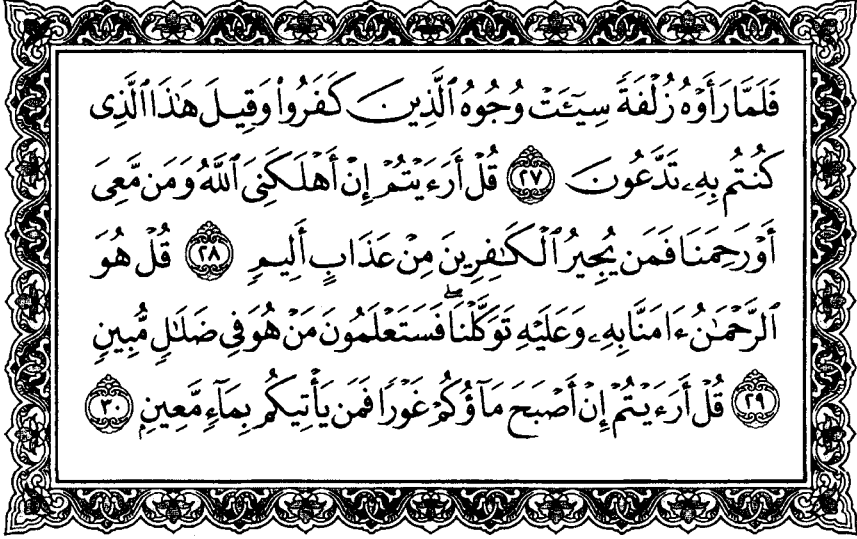 فَلَمَّا رَأَوْهُ زُلْفَةً سِيٓـَٔتْ وُجُوهُ ٱلَّذِينَ كَفَرُوا۟ وَقِيلَ هَـٰذَا ٱلَّذِى
كُنتُم بِهِۦ تَدَّعُونَ ٢٧ قُلْ أَرَءَيْتُمْ إِنْ أَهْلَكَنِىَ ٱللَّهُ وَمَن مَّعِىَ
أَوْ رَحِمَنَا فَمَن يُجِيرُ ٱلْكَـٰفِرِينَ مِنْ عَذَابٍ أَلِيمٍ ٢٨ قُلْ هُوَ
ٱلرَّحْمَـٰنُ ءَامَنَّا بِهِۦ وَعَلَيْهِ تَوَكَّلْنَا ۖ فَسَتَعْلَمُونَ مَنْ هُوَ فِى ضَلَـٰلٍ مُّبِينٍ
٢٩ قُلْ أَرَءَيْتُمْ إِنْ أَصْبَحَ مَآؤُكُمْ غَوْرًا فَمَن يَأْتِيكُم بِمَآءٍ مَّعِينٍ ٣٠